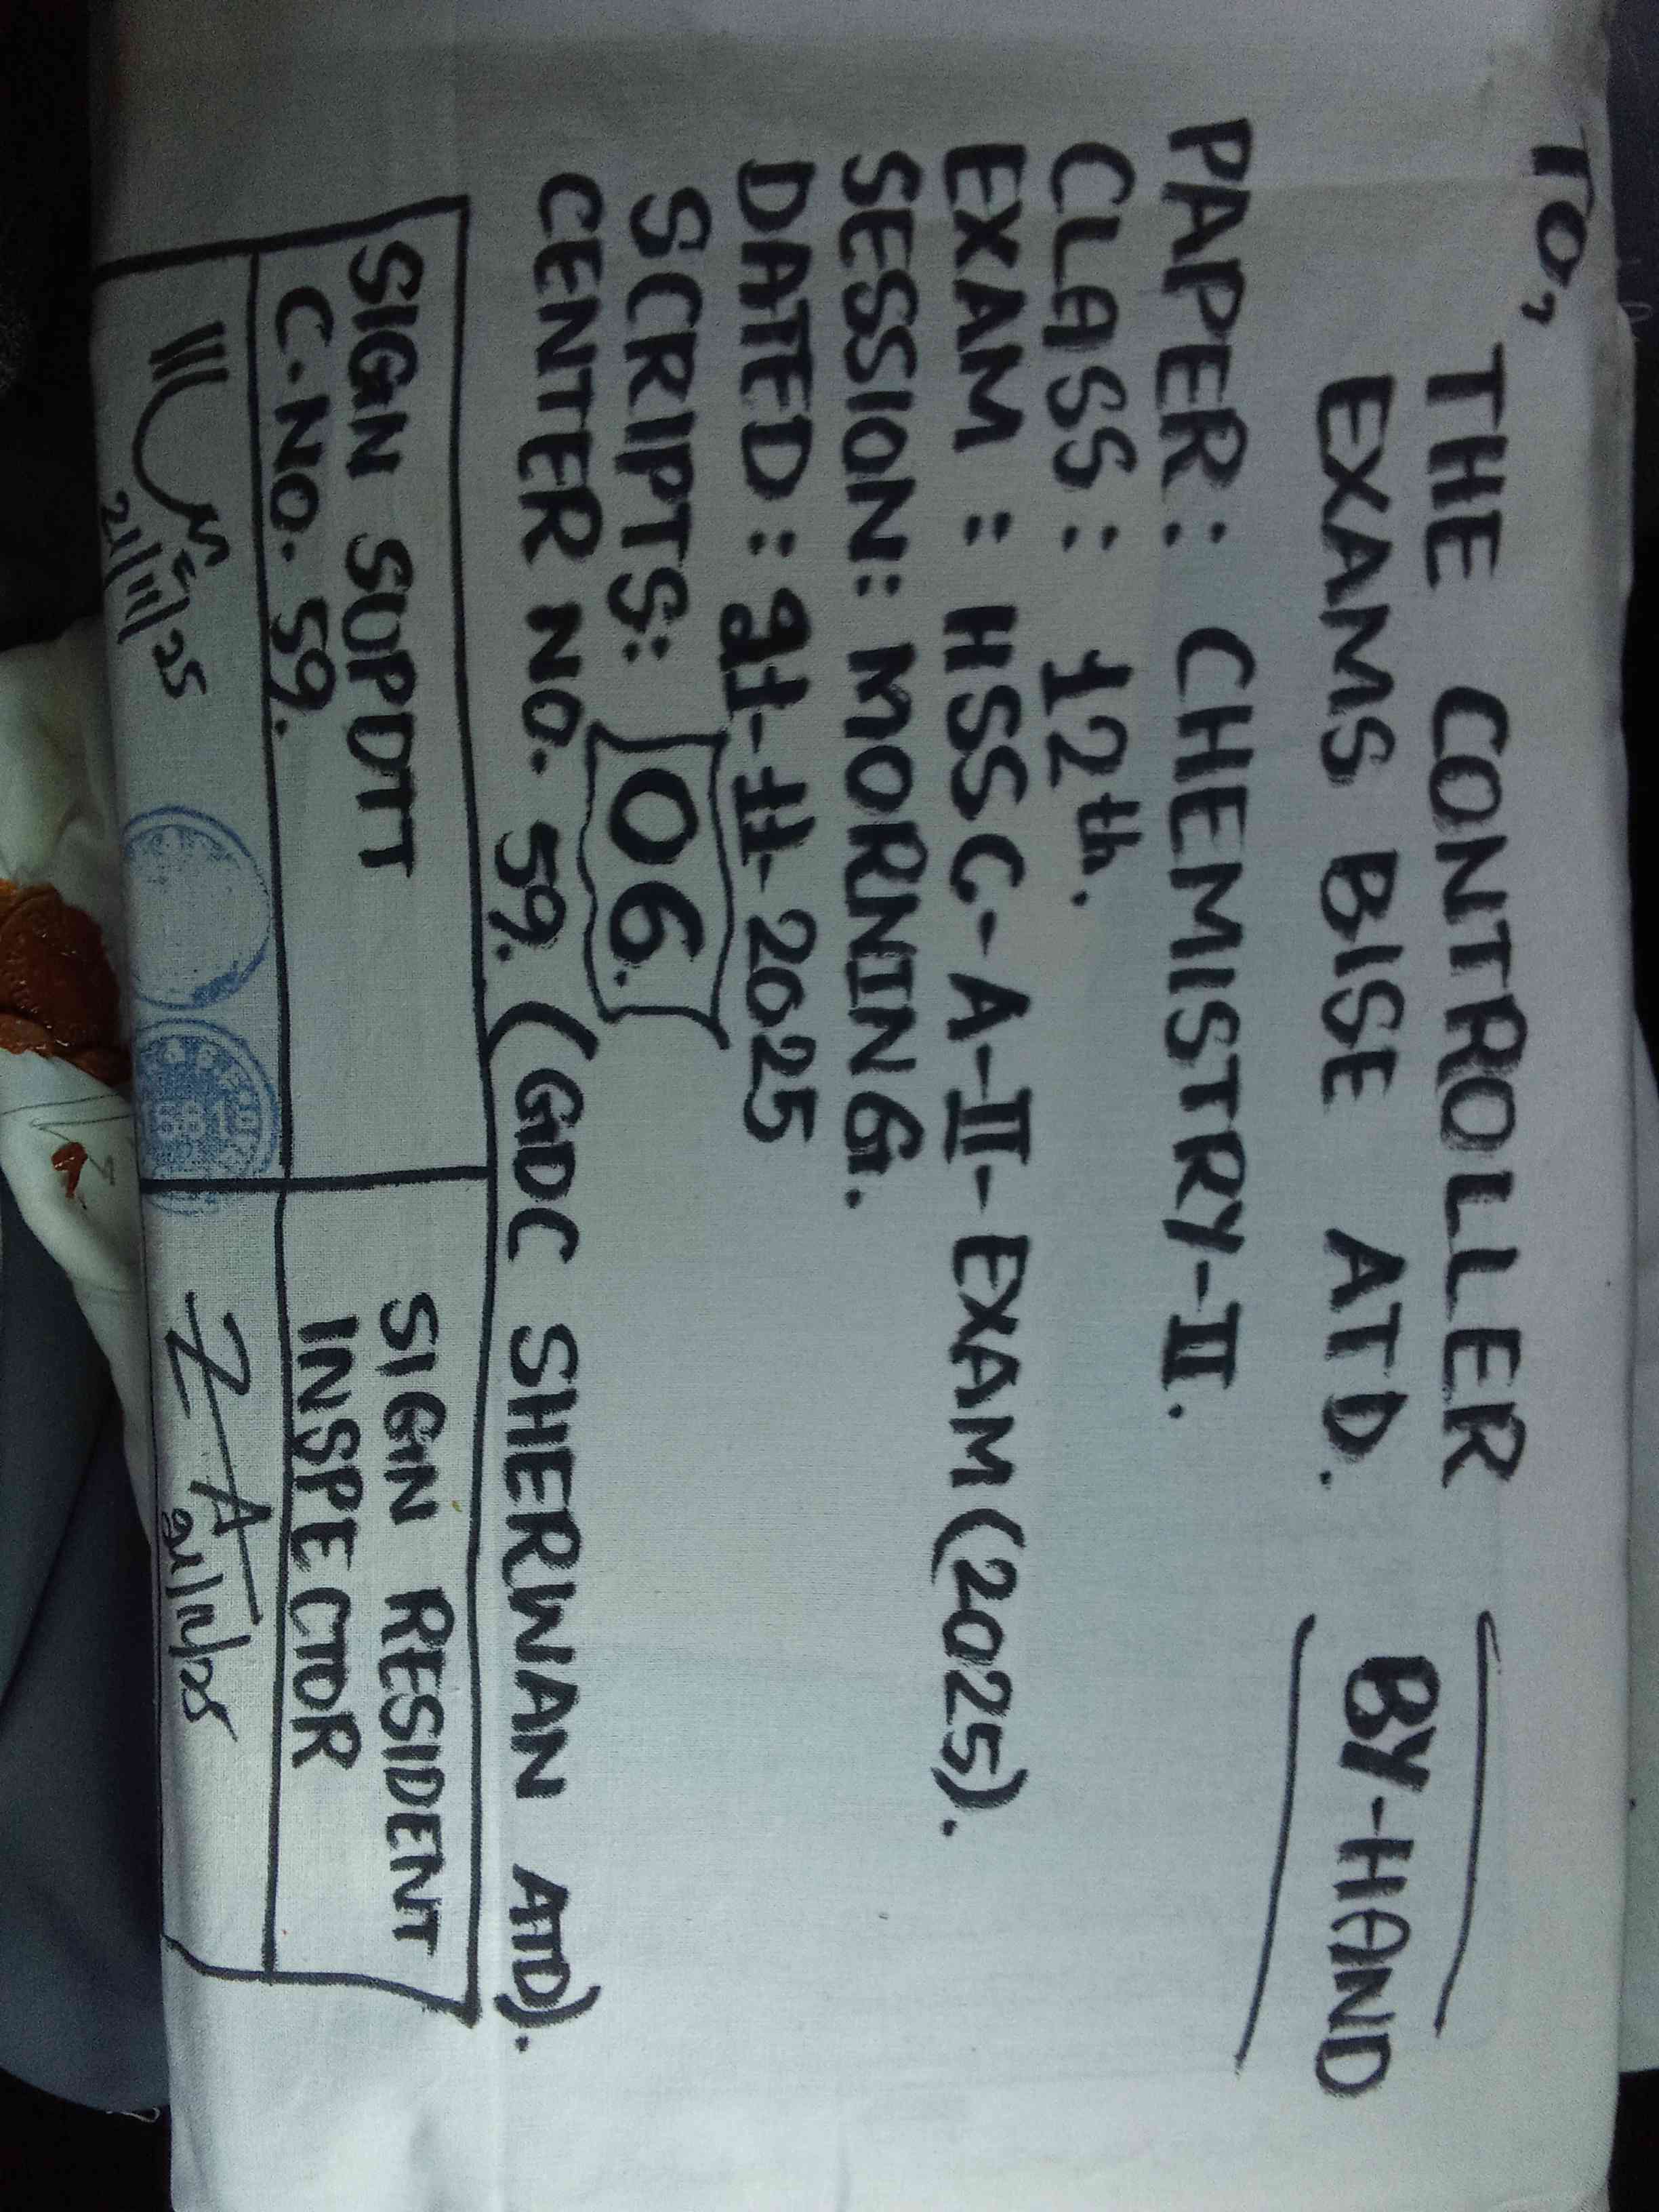 TO,
THE CONTROLLER
EXAMS BISE ATD.
BY-HAND
PAPER: CHEMISTRY-II.
CLASS: 12th.
EXAM: HSSC-A-II-EXAM(2025).
SESSION: MORNING.
DATED: 21-11-2025
SCRIPTS: 06.
CENTER NO. 59. (GDC SHERWAN ATD).
SIGN SUPDTT
C.NO. 59.
SIGN RESIDENT
INSPECTOR
21/11/25
21/11/25